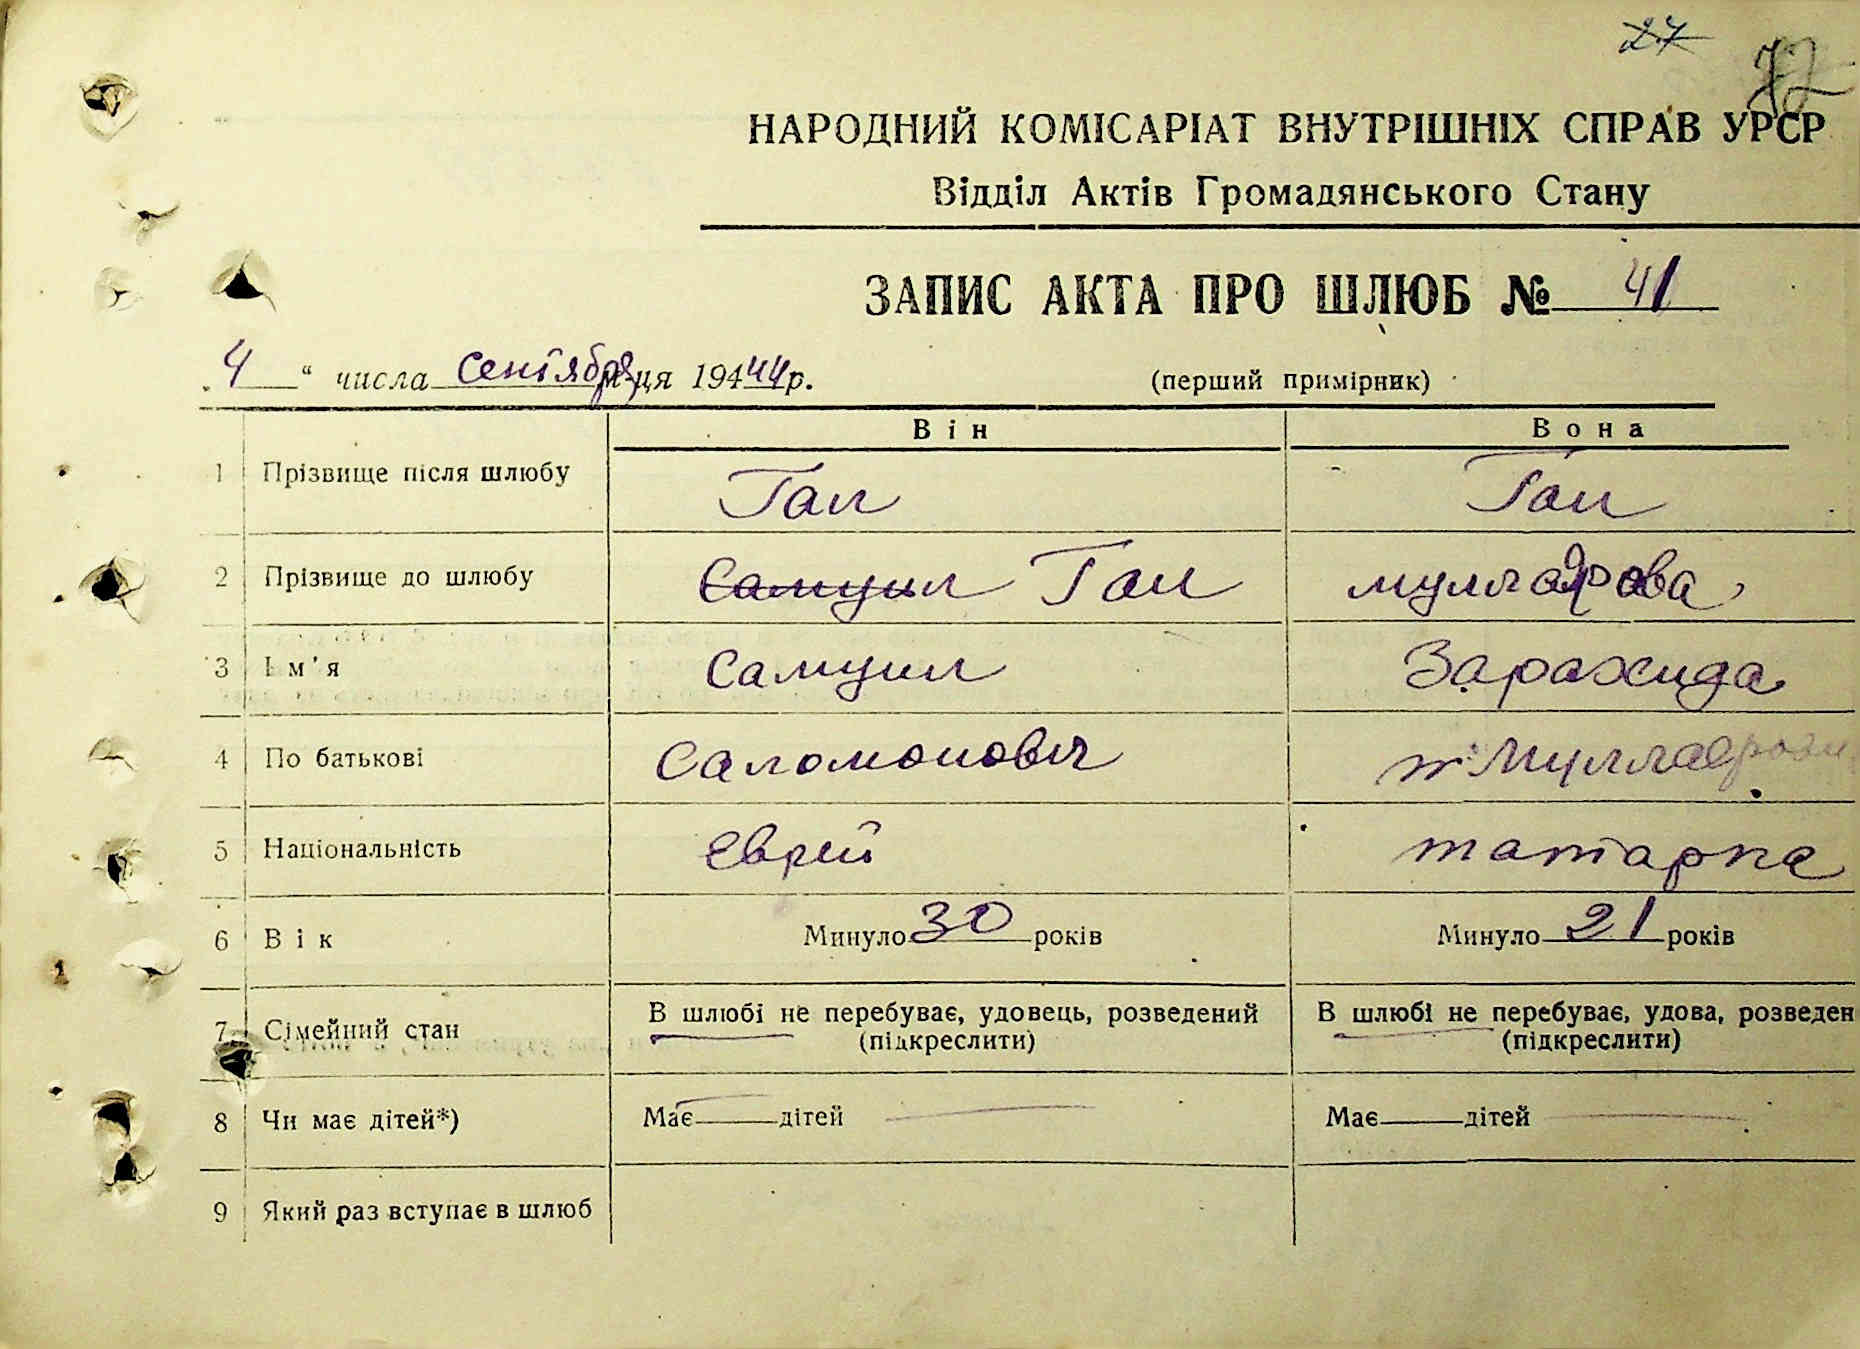 27
72
НАРОДНИЙ КОМІСАРІАТ ВНУТРІШНІХ СПРАВ УРСР
Відділ Актів Громадянського Стану
ЗАПИС АКТА ПРО ШЛЮБ № 41
„4“ числа сентября м-ця 1944 р.
(перший примірник)
Він Вона
1 Прізвище після шлюбу Ган Ган
2 Прізвище до шлюбу Самуил Ган муллаярова
3 Ім'я Самуил Заракида
4 По батькові Саломонович
5 Національність Еврей татарка
6 Вік Минуло 30 років Минуло 21 років
7 Сімейний стан В шлюбі не перебуває, удовець, розведений В шлюбі не перебуває, удова, розведен
(підкреслити) (підкреслити)
8 Чи має дітей*) Має — дітей Має — дітей
9 Який раз вступає в шлюб